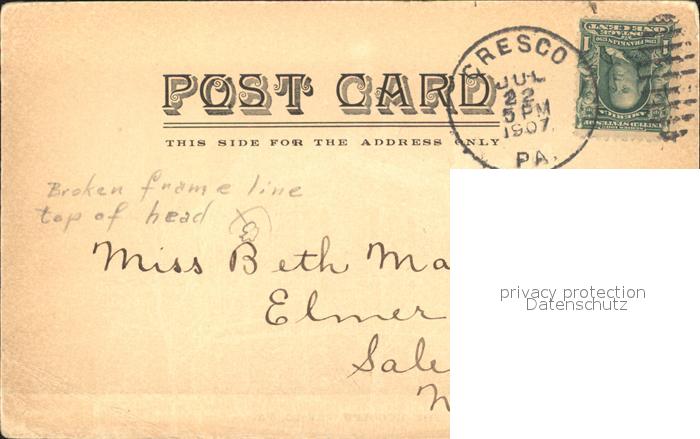 POST CARD
THIS SIDE FOR THE ADDRESS ONLY
CRESCO
JUL
22
5 PM
1907
PA.
ONE CENT
1
1
UNITED STATES OF
AMERICA
Broken frame line
top of head
Miss Beth Ma
Elmer
Sale
N
privacy protection
Datenschutz